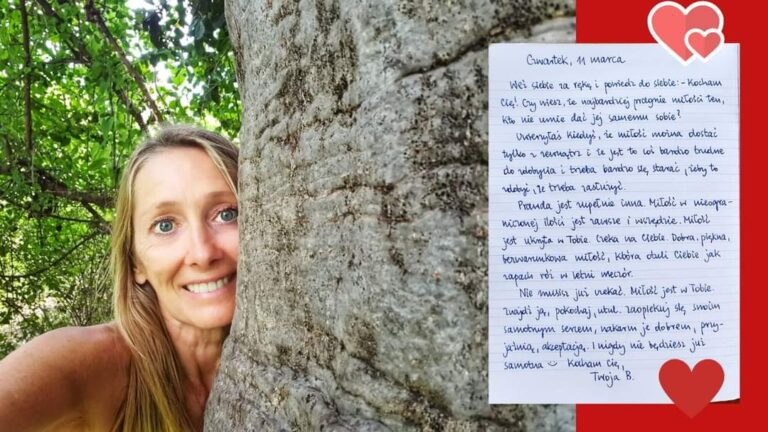 Czwartek, 11 marca
Weź siebie za rękę i powiedz do siebie: - Kocham
Cię! Czy wiesz, że najbardziej pragnie miłości ten,
kto nie umie dać jej samemu sobie?
Uwierzyłaś kiedyś, że miłość można dostać
tylko z zewnątrz i że jest to coś bardzo trudne
do zdobycia i trzeba bardzo się starać, żeby to
zdobyć, że trzeba zasłużyć.
Prawda jest zupełnie inna. Miłość w nieogra-
niczonej ilości jest zawsze i wszędzie. Miłość
jest ukryta w Tobie. Czeka na Ciebie. Dobra, piękna,
bezwarunkowa miłość, która otuli Ciebie jak
zapach róż w letni wieczór.
Nie musisz już czekać. Miłość jest w Tobie.
Znajdź ją, pokochaj, utul. Zaopiekuj się swoim
samotnym sercem, nakarm je dobrem, przy-
jaźnią, akceptacją. I nigdy nie będziesz już
samotna Kocham Cię,
Twoja B.